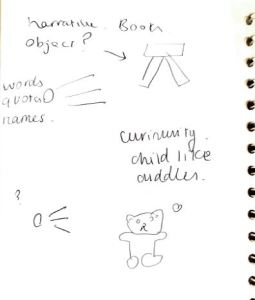 narrative. Book
object?
words
quota
names.
child like
cuddles.
?